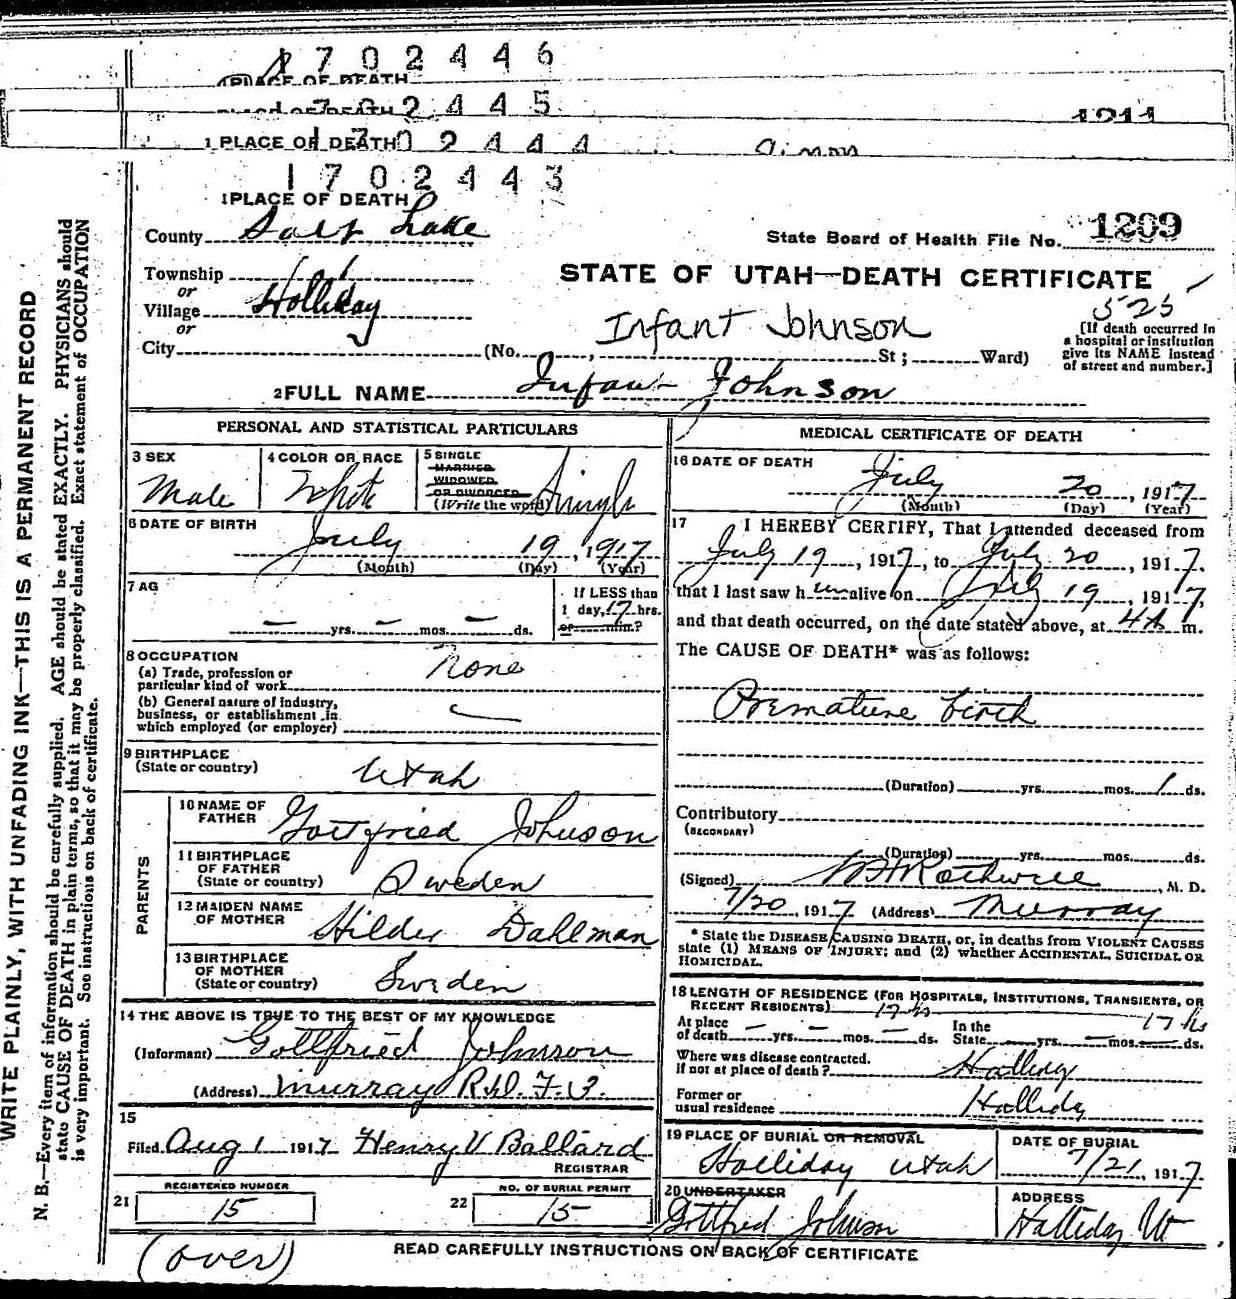 1702446
PLACE OF DEATH
1702445
PLACE OF DEATH
1211
1 PLACE OF DEATH 1702444
1702443
1 PLACE OF DEATH
County Salt Lake
State Board of Health File No. 1209
Township
or
Village Holliday
or
City
STATE OF UTAH—DEATH CERTIFICATE
525
Infant Johnson
(No. , St; Ward)
[If death occurred in
a hospital or institution
give its NAME instead
of street and number.]
2 FULL NAME Infant Johnson
PERSONAL AND STATISTICAL PARTICULARS
3 SEX
Male
4 COLOR OR RACE
White
5 SINGLE
MARRIED
WIDOWED
OR DIVORCED
(Write the word) Single
6 DATE OF BIRTH
July 19, 1917
(Month) (Day) (Year)
7 AG
— yrs. — mos. — ds.
If LESS than
1 day, 17 hrs.
or min.?
8 OCCUPATION
(a) Trade, profession or
particular kind of work None
(b) General nature of industry,
business, or establishment in
which employed (or employer)
9 BIRTHPLACE
(State or country) Utah
PARENTS
10 NAME OF
FATHER Gottfried Johnson
11 BIRTHPLACE
OF FATHER
(State or country) Sweden
12 MAIDEN NAME
OF MOTHER Hilder Dahlman
13 BIRTHPLACE
OF MOTHER
(State or country) Sweden
14 THE ABOVE IS TRUE TO THE BEST OF MY KNOWLEDGE
(Informant) Gottfried Johnson
(Address) Murray R.D. F.
15
Filed Aug 1 1917 Henry V Ballard
REGISTRAR
REGISTERED NUMBER
21 15
NO. OF BURIAL PERMIT
22 15
MEDICAL CERTIFICATE OF DEATH
16 DATE OF DEATH
July 20, 1917
(Month) (Day) (Year)
17 I HEREBY CERTIFY, That I attended deceased from
July 19, 1917, to July 20, 1917.
that I last saw h im alive on July 19, 1917,
and that death occurred, on the date stated above, at 4A m.
The CAUSE OF DEATH* was as follows:
Premature birth
(Duration) yrs. mos. 1 ds.
Contributory
(SECONDARY)
(Duration) yrs. mos. ds.
(Signed) W H Rothwell, M. D.
7/20, 1917 (Address) Murray
* State the DISEASE CAUSING DEATH, or, in deaths from VIOLENT CAUSES
state (1) MEANS OF INJURY; and (2) whether ACCIDENTAL, SUICIDAL OR
HOMICIDAL.
18 LENGTH OF RESIDENCE (FOR HOSPITALS, INSTITUTIONS, TRANSIENTS, OR
RECENT RESIDENTS) 17 hs
At place
of death — yrs. — mos. — ds.
In the
State — yrs. — mos. — ds. 17 hs
Where was disease contracted.
if not at place of death? Holliday
Former or
usual residence Holliday
19 PLACE OF BURIAL OR REMOVAL
Holliday Utah
DATE OF BURIAL
7/21, 1917
20 UNDERTAKER
Gottfred Johnson
ADDRESS
Halliday Ut
(over)
READ CAREFULLY INSTRUCTIONS ON BACK OF CERTIFICATE
WRITE PLAINLY, WITH UNFADING INK—THIS IS A PERMANENT RECORD
N. B.—Every item of information should be carefully supplied. AGE should be stated EXACTLY. PHYSICIANS should
state CAUSE OF DEATH in plain terms, so that it may be properly classified. Exact statement of OCCUPATION
is very important. See instructions on back of certificate.